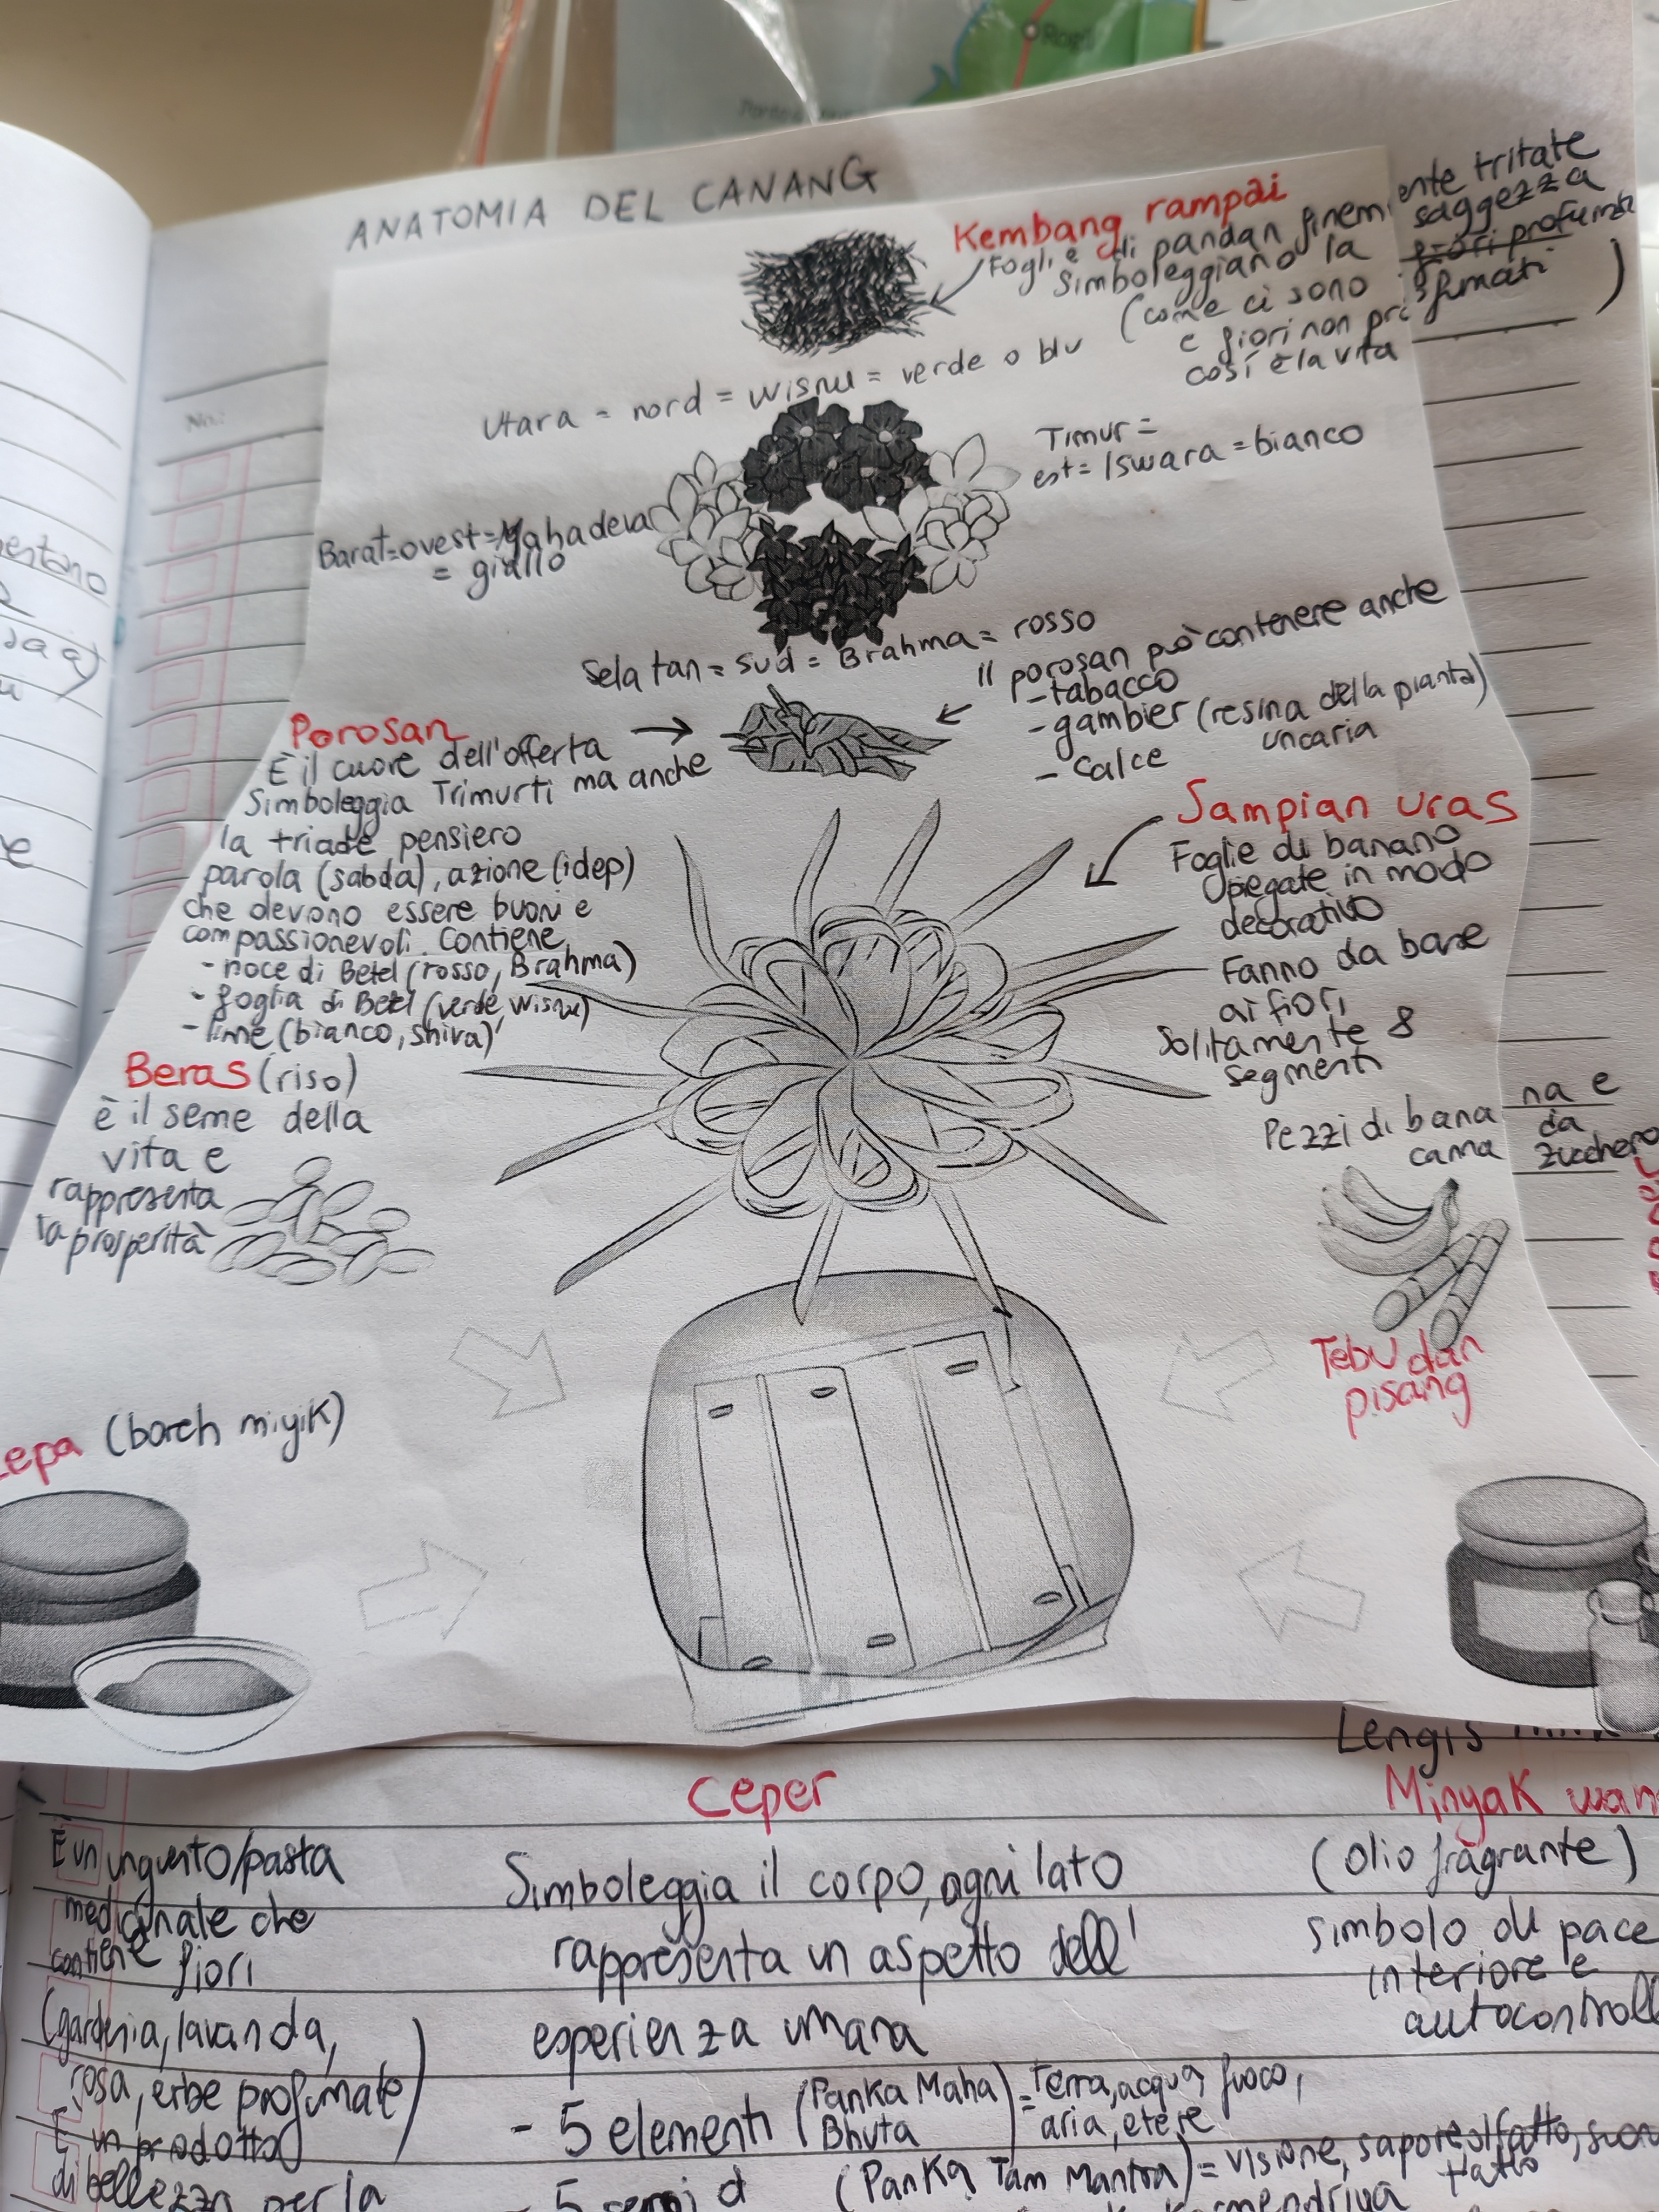 ANATOMIA DEL CANANG
Kembang rampai
Foglie di pandan finemente tritate
simboleggiano la saggezza
(come ci sono fiori profumati
e fiori non profumati
così è la vita)
Utara = nord = Wisnu = verde o blu
Timur =
est = Iswara = bianco
Barat = ovest = Mahadeva
= giallo
Selatan = sud = Brahma = rosso
Il porosan può contenere anche
- tabacco
- gambier (resina della pianta)
uncaria
- calce
Porosan
È il cuore dell'offerta
Simboleggia Trimurti ma anche
la triade pensiero
parola (sabda), azione (idep)
che devono essere buoni e
compassionevoli. Contiene
- noce di Betel (rosso, Brahma)
- foglia di Betel (verde, Wisnu)
- lime (bianco, Shiva)
Sampian uras
Foglie di banano
piegate in modo
decorativo
Fanno da base
ai fiori
Solitamente 8
segmenti
Beras (riso)
è il seme della
vita e
rappresenta
la prosperità
Pezzi di banana e
canna da
zucchero
Tebu dan
pisang
(boreh miyik)
Lengis
Ceper
Minyak
È un unguento/pasta
medicinale che
contiene fiori
(gardenia, lavanda,
rosa, erbe profumate)
È un prodotto
di bellezza per la
Simboleggia il corpo, ogni lato
rappresenta un aspetto dell'
esperienza umana
- 5 elementi (Panka Maha
Bhuta) = terra, acqua, fuoco,
aria, etere
- 5 sensi d (Panka Tam Mantra) = visione, sapore, olfatto,
tatto
(olio fragrante)
simbolo di pace
interiore e
Rogl
No.: